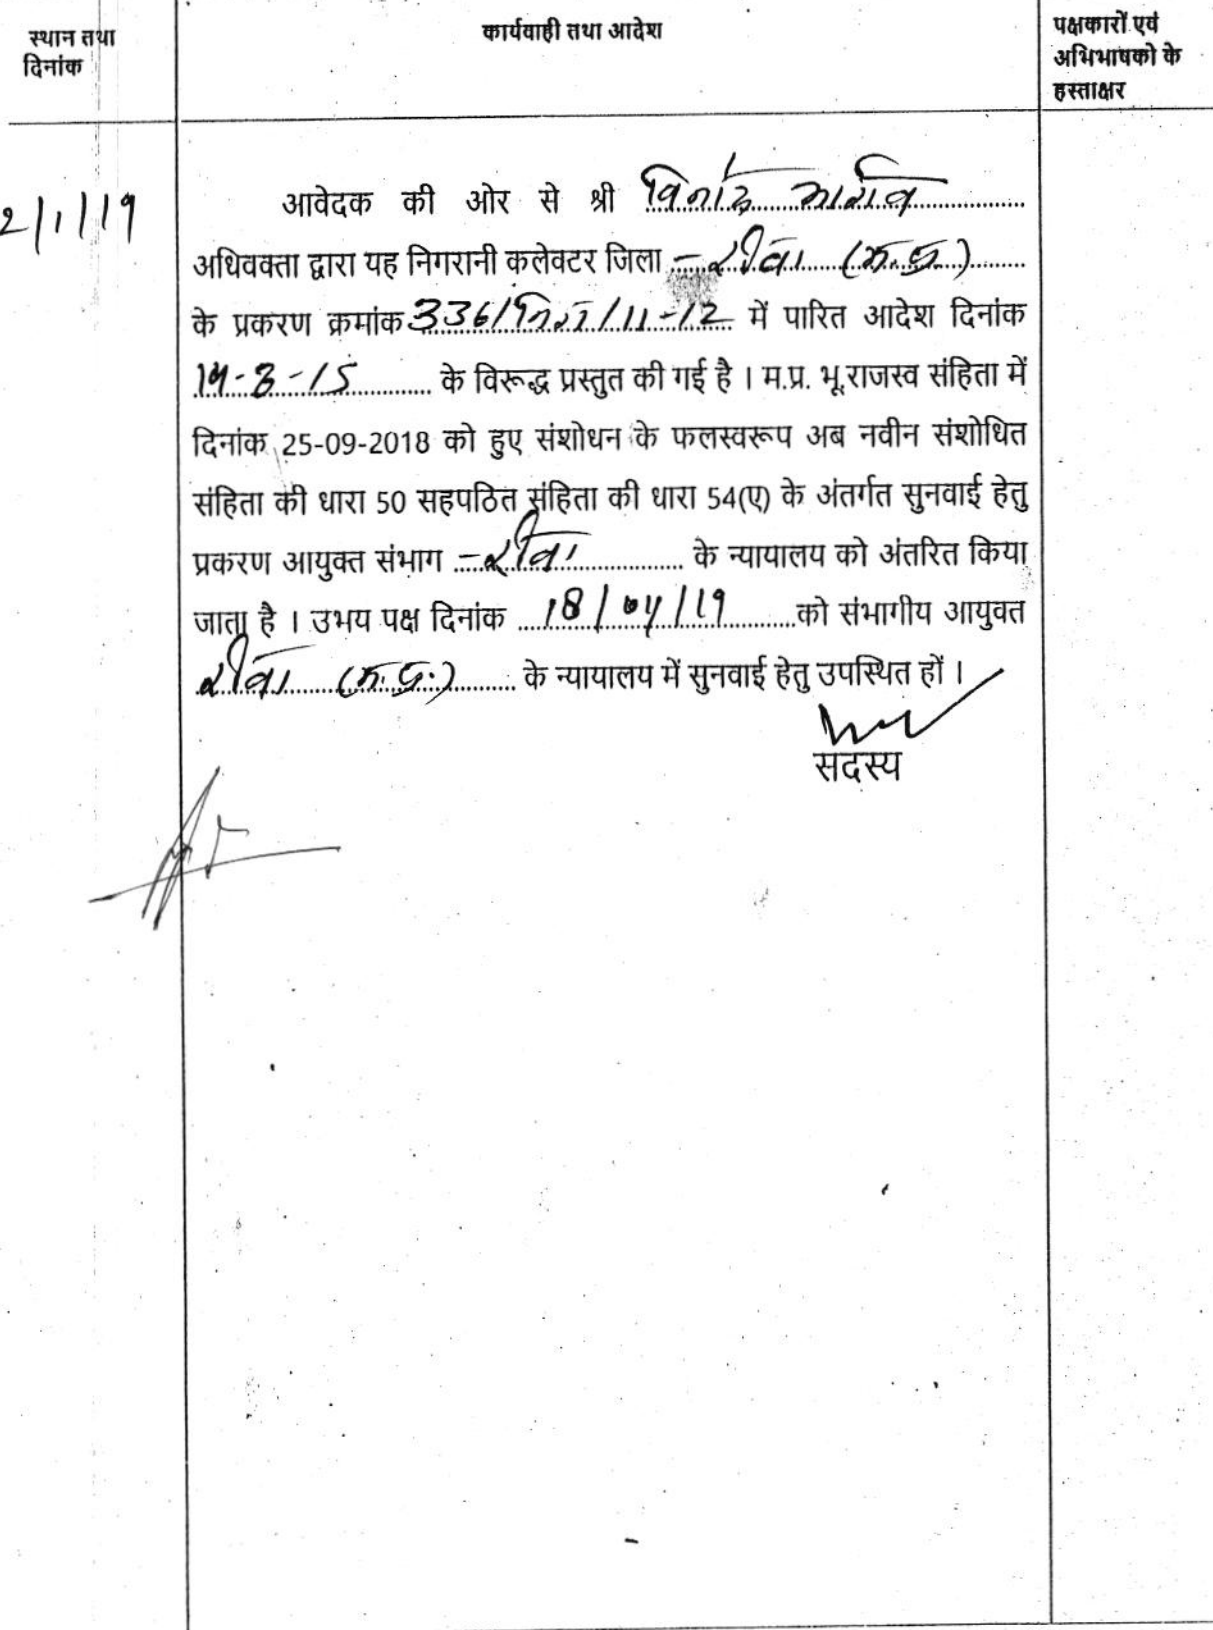 स्थान तथा
दिनांक
कार्यवाही तथा आदेश
पक्षकारों एवं
अभिभाषको के
हस्ताक्षर
2/1/19
आवेदक की ओर से श्री विनोद भार्गव
अधिवक्ता द्वारा यह निगरानी कलेक्टर जिला – रीवा (म.प्र.)
के प्रकरण क्रमांक 336/निग/11-12 में पारित आदेश दिनांक
-3-15 के विरूद्ध प्रस्तुत की गई है । म.प्र. भू.राजस्व संहिता में
दिनांक 25-09-2018 को हुए संशोधन के फलस्वरूप अब नवीन संशोधित
संहिता की धारा 50 सहपठित संहिता की धारा 54(ए) के अंतर्गत सुनवाई हेतु
प्रकरण आयुक्त संभाग – रीवा के न्यायालय को अंतरित किया
जाता है । उभय पक्ष दिनांक 18/04/19 को संभागीय आयुक्त
रीवा (म.प्र.) के न्यायालय में सुनवाई हेतु उपस्थित हों ।
सदस्य